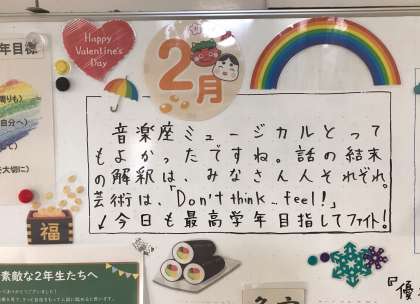 年目標
Happy
Valentine's
Day
2月
周りも)
自分へ)
して)
大切に)
音楽座ミュージカルとって
もよかったですね。話の結末
の解釈は、みなさん人それぞれ。
芸術は、「Don't think…feel!」
↓今日も最高学年目指してファイト!
福
素敵な2年生たちへ
『優